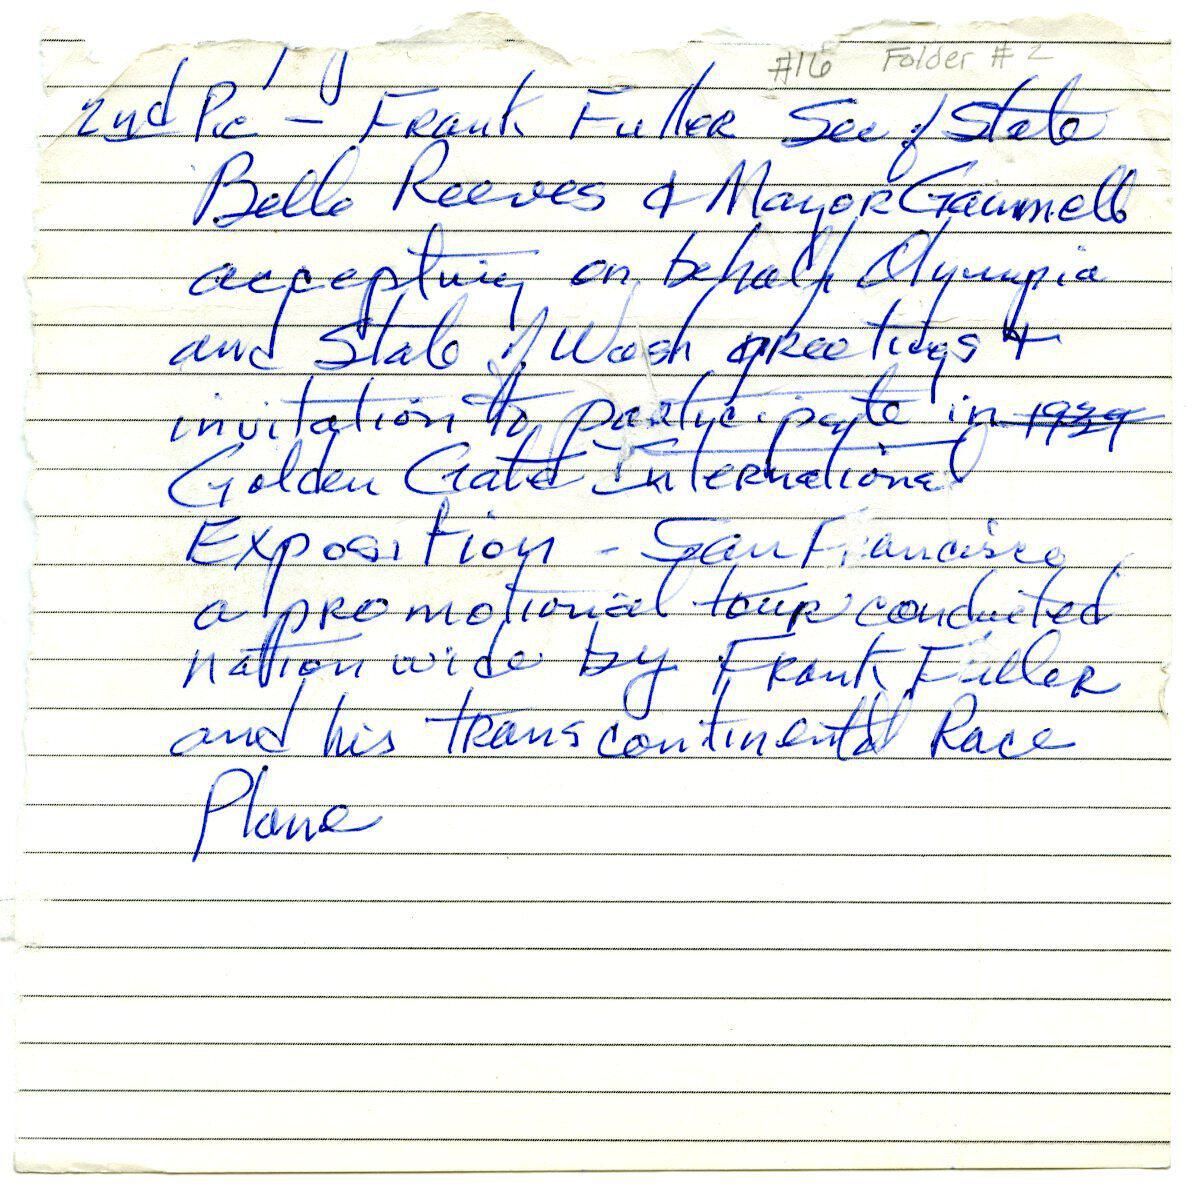 #16 Folder #2
2nd Pic - Frank Fuller Sec of State
Belle Reeves & Mayor Gammell
accepting on behalf Olympia
and State of Wash greetings +
invitation to participate in 1939
Golden Gate International
Exposition - San Francisco
a promotional tour conducted
nation wide by Frank Fuller
and his transcontinental Race
Plane